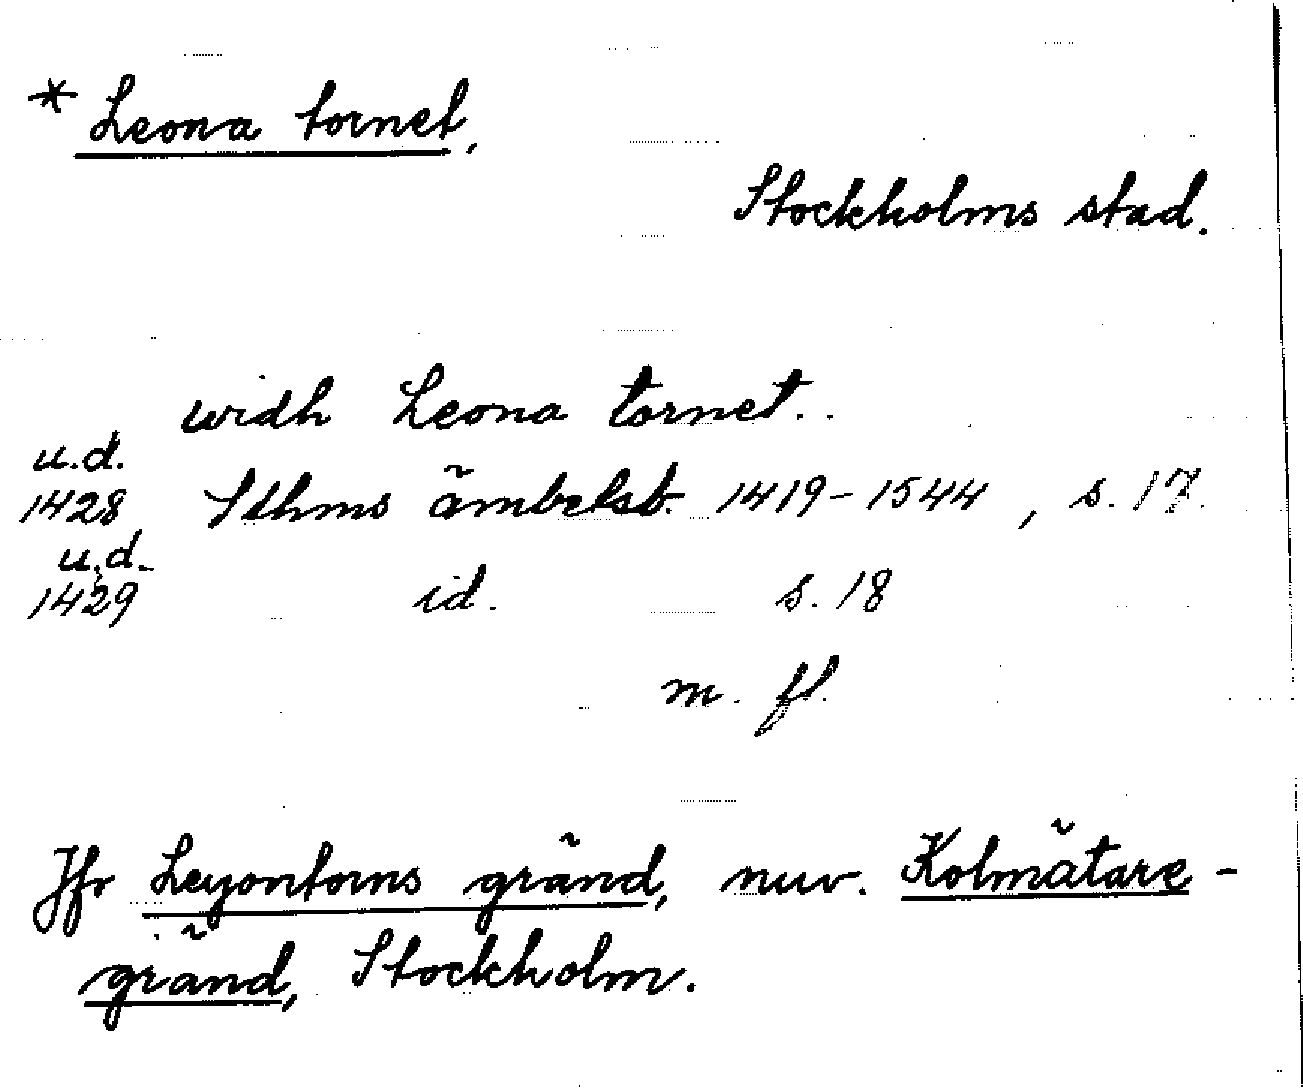 * Leona tornet,
Stockholms stad.
widh Leona tornet..
u.d.
1428 Sthms ämbetsb. 1419-1544, s. 17.
u.d.
1429 id. s. 18
m. fl.
Jfr Leyontorns gränd, nuv. Kolmätare-
gränd, Stockholm.